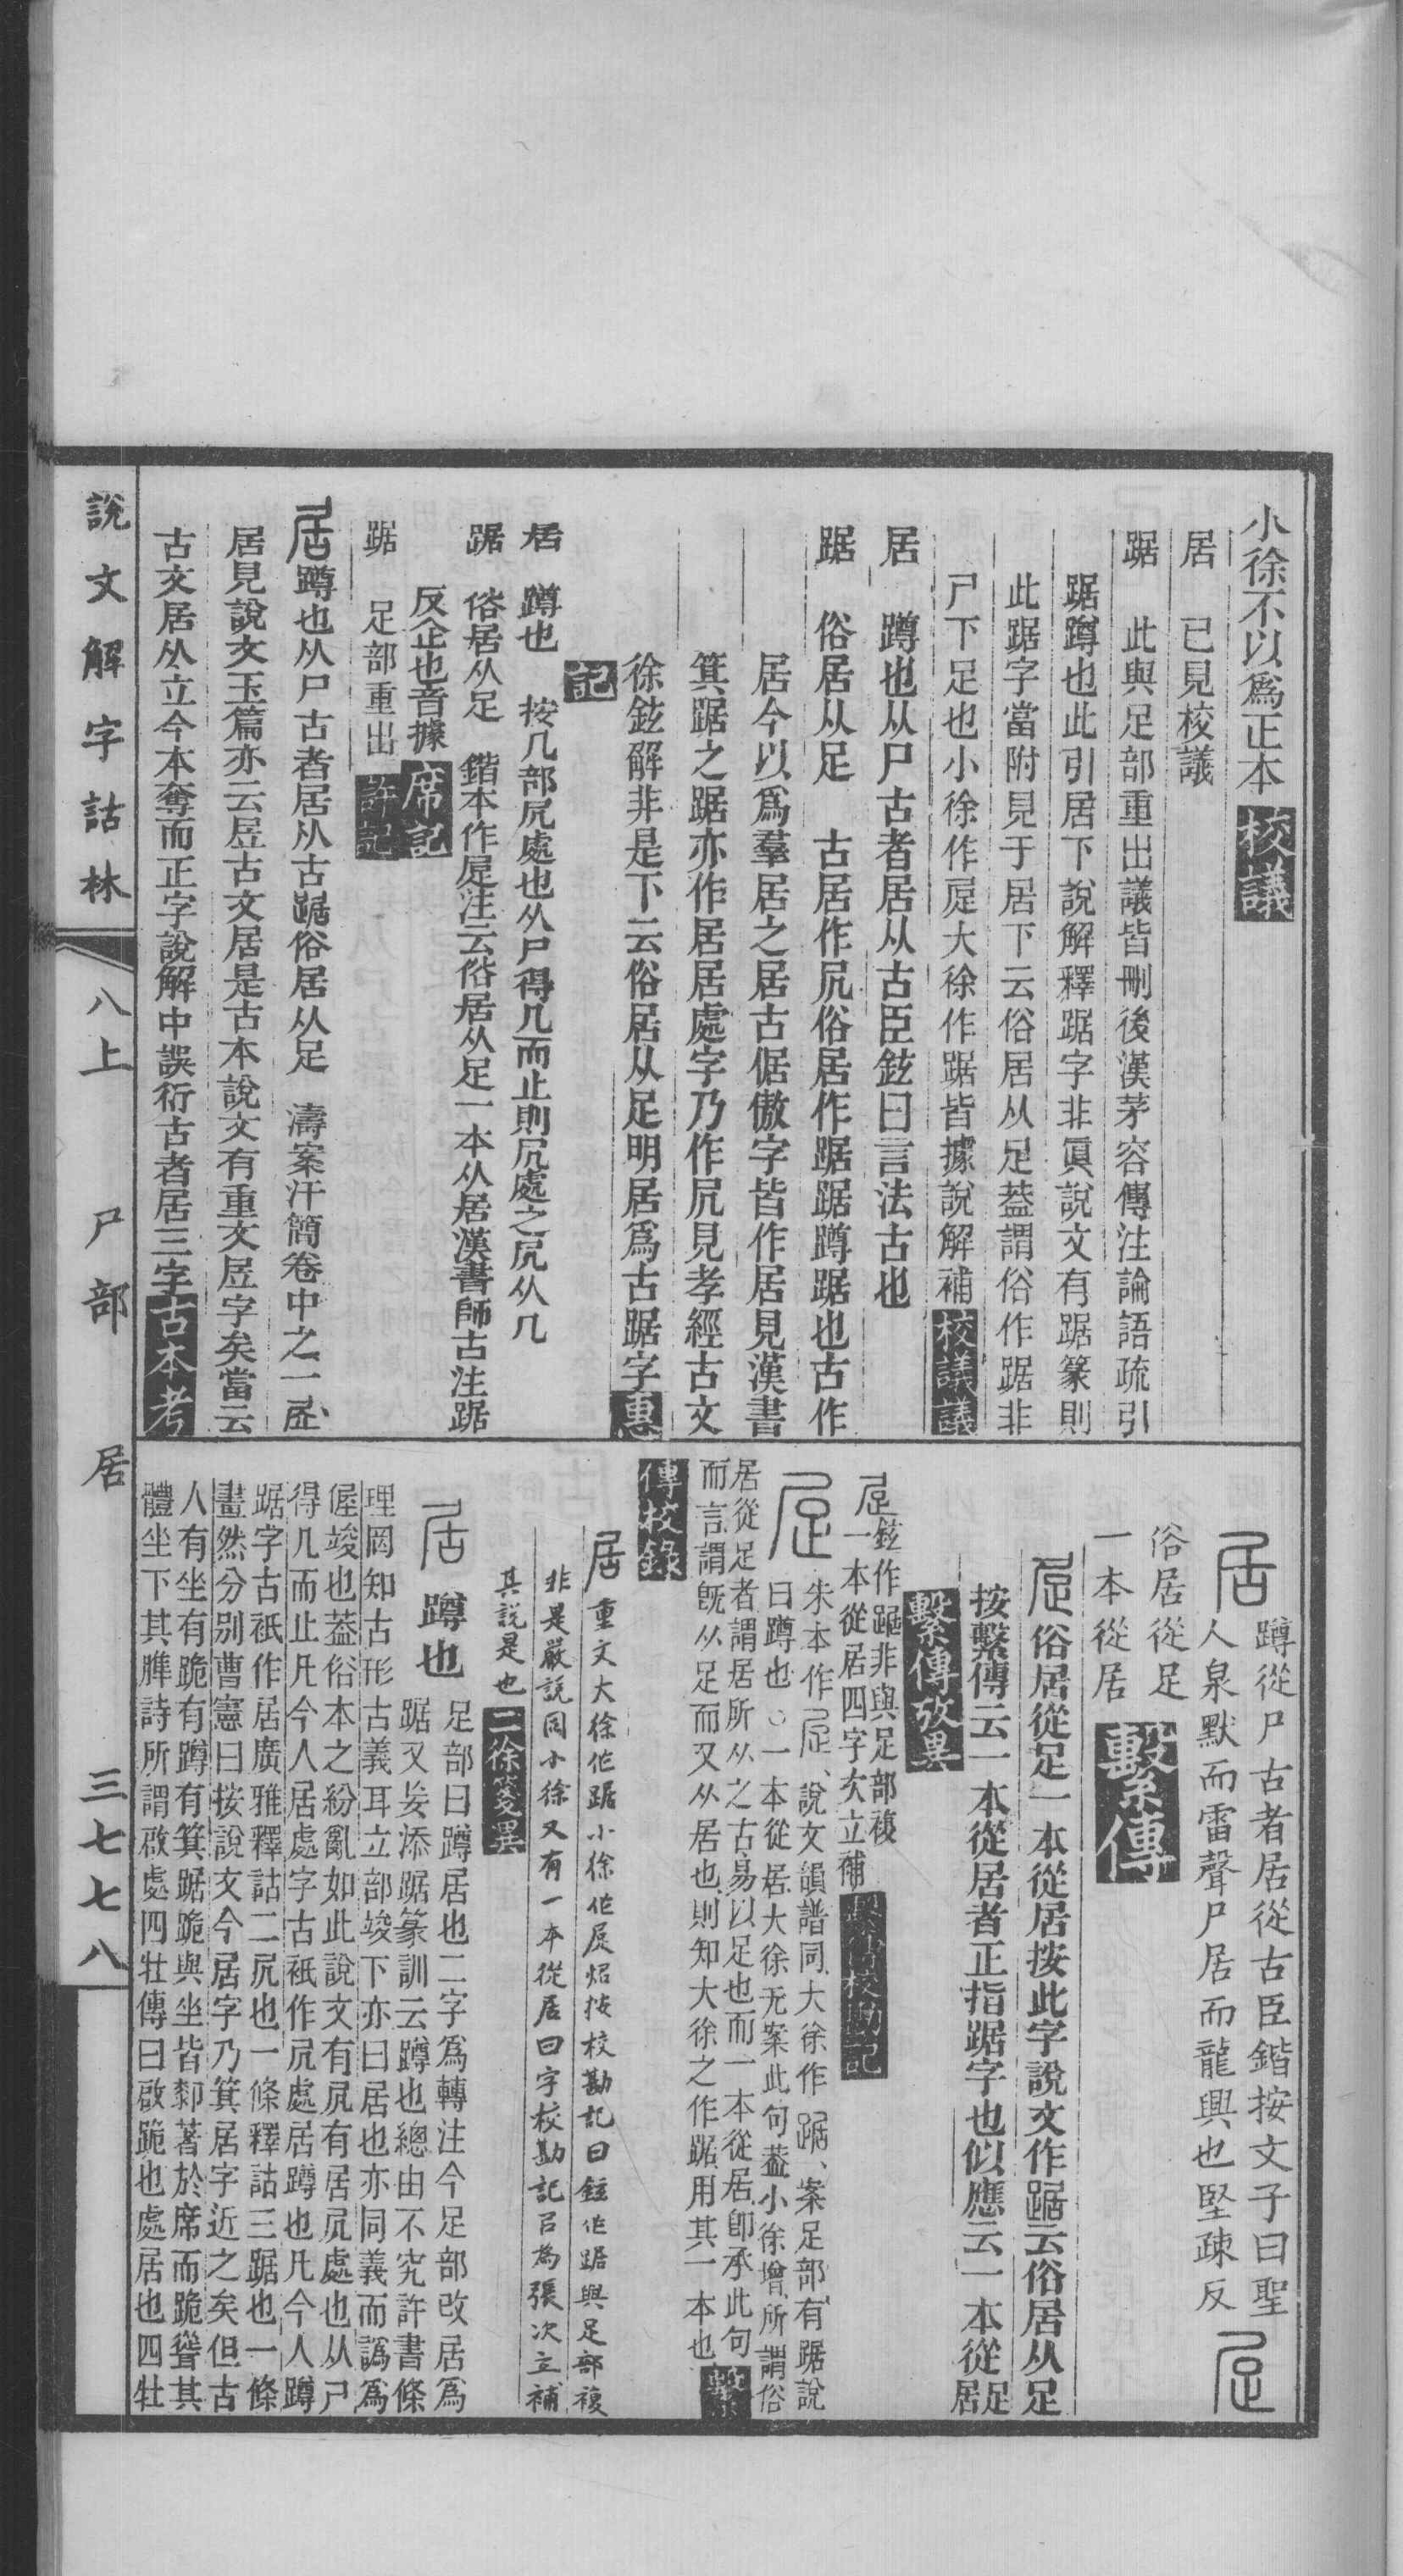 小徐不以爲正本校議
居　已見校議
踞　此與足部重出議皆刪後漢茅容傳注論語疏引
踞蹲也此引居下說解釋踞字非眞說文有踞篆則
此踞字當附見于居下云俗居从足葢謂俗作踞非
尸下足也小徐作𡱒大徐作踞皆據說解補校議議
居　蹲也从尸古者居从古臣鉉曰言法古也
踞　俗居从足　古居作凥俗居作踞踞蹲踞也古作
居今以爲羣居之居古倨傲字皆作居見漢書
箕踞之踞亦作居居處字乃作凥見孝經古文
徐鉉解非是下云俗居从足明居爲古踞字惠
記
居　蹲也　按几部凥處也从尸得几而止則凥處之凥从几
踞　俗居从足　鍇本作𡱒注云俗居从足一本从居漢書師古注踞
反企也音據席記
踞　足部重出許記
居蹲也从尸古者居从古踞俗居从足　濤案汗簡卷中之一
居見說文玉篇亦云㞐古文居是古本說文有重文㞐字矣當云
古文居从立今本奪而正字說解中誤衍古者居三字古本考
居　蹲從尸古者居從古臣鍇按文子曰聖
人泉默而雷聲尸居而龍興也堅疎反　𡱒
俗居從足
一本從居　繫傳
𡱒俗居從足一本從居按此字說文作踞云俗居从足
按繫傳云一本從居者正指踞字也似應云一本從足居
繫傳攷異
𡱒鉉作踞非與足部複
一本從居四字次立補　繫傳校勘記
𡱒　朱本作𡱒、說文韻譜同大徐作踞、案足部有踞說
曰蹲也○一本從居大徐无案此句葢小徐增所謂俗
居從足者謂居所从之古易以足也而一本從居卽承此句
而言謂旣从足而又从居也則知大徐之作踞用其一本也繫
傳校錄
居　重文大徐作踞小徐作𡱒炤按校勘記曰鉉作踞與足部複
非是嚴説同小徐又有一本從居曰字校勘記吕為張次立補
其説是也　二徐箋異
居　蹲也　足部曰蹲居也二字爲轉注今足部改居爲
踞又妄添踞篆訓云蹲也總由不究許書條
理罔知古形古義耳立部竣下亦曰居也亦同義而譌爲
偓竣也葢俗本之紛亂如此說文有凥有居凥處也从尸
得几而止凡今人居處字古祇作凥處居蹲也凡今人蹲
踞字古祇作居廣雅釋詁二凥也一條釋詁三踞也一條
畫然分別曹憲曰按說文今居字乃箕居字近之矣但古
人有坐有跪有蹲有箕踞跪與坐皆厀著於席而跪聳其
體坐下其脽詩所謂啟處四牡傳曰啟跪也處居也四牡
說文解字詁林　八上　尸部　居　三七七八